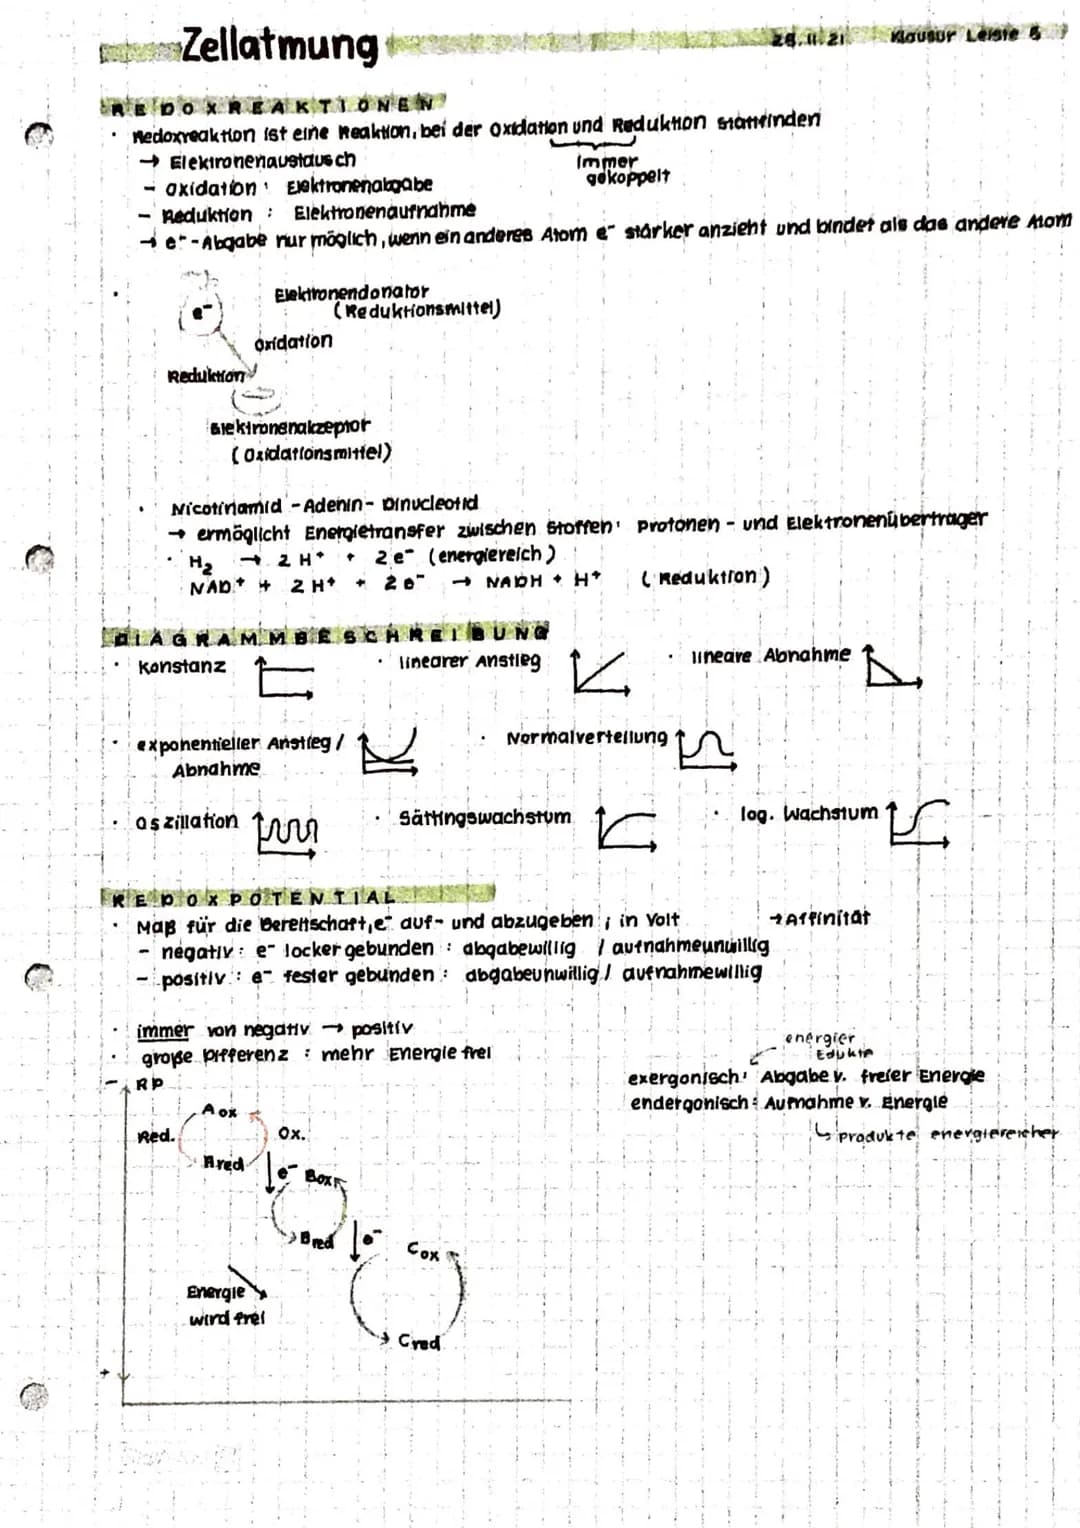 Zellatmung 28.11.21 Klausur Leiste 5
REDOXREAKTIONEN
· Redoxreaktion ist eine Reaktion, bei der Oxidation und Reduktion stattfinden
→ Elektronenaustausch immer
gekoppelt
- Oxidation : Elektronenabgabe
- Reduktion : Elektronenaufnahme
→ e⁻-Abgabe nur möglich, wenn ein anderes Atom e⁻ stärker anzieht und bindet als das andere Atom
Elektronendonator
e⁻ (Reduktionsmittel)
Oxidation
Reduktion
Elektronenakzeptor
(Oxidationsmittel)
· Nicotinamid - Adenin - Dinucleotid
→ ermöglicht Energietransfer zwischen Stoffen: Protonen - und Elektronenüberträger
· H₂ → 2 H⁺ + 2e⁻ (energiereich)
NAD⁺ + 2 H⁺ + 2e⁻ → NADH + H⁺ (Reduktion)
DIAGRAMMBESCHREIBUNG
· Konstanz · linearer Anstieg · lineare Abnahme
· exponentieller Anstieg / · Normalverteilung
Abnahme
· oszillation · Sättingswachstum · log. Wachstum
REDOXPOTENTIAL
· Maß für die Bereitschaft, e⁻ auf- und abzugeben ; in Volt → Affinität
- negativ : e⁻ locker gebunden : abgabewillig / aufnahmeunwillig
- positiv : e⁻ fester gebunden : abgabeunwillig / aufnahmewillig
· immer von negativ → positiv
· große Differenz : mehr Energie frei
energier
Edukte
exergonisch: Abgabe v. freier Energie
endergonisch: Aufnahme v. Energie
↳ produkte energiereicher
- RP
A ox
Red. Ox.
A red
e⁻ Box
Bred e⁻
Cox
Energie
wird frei
Cred
+